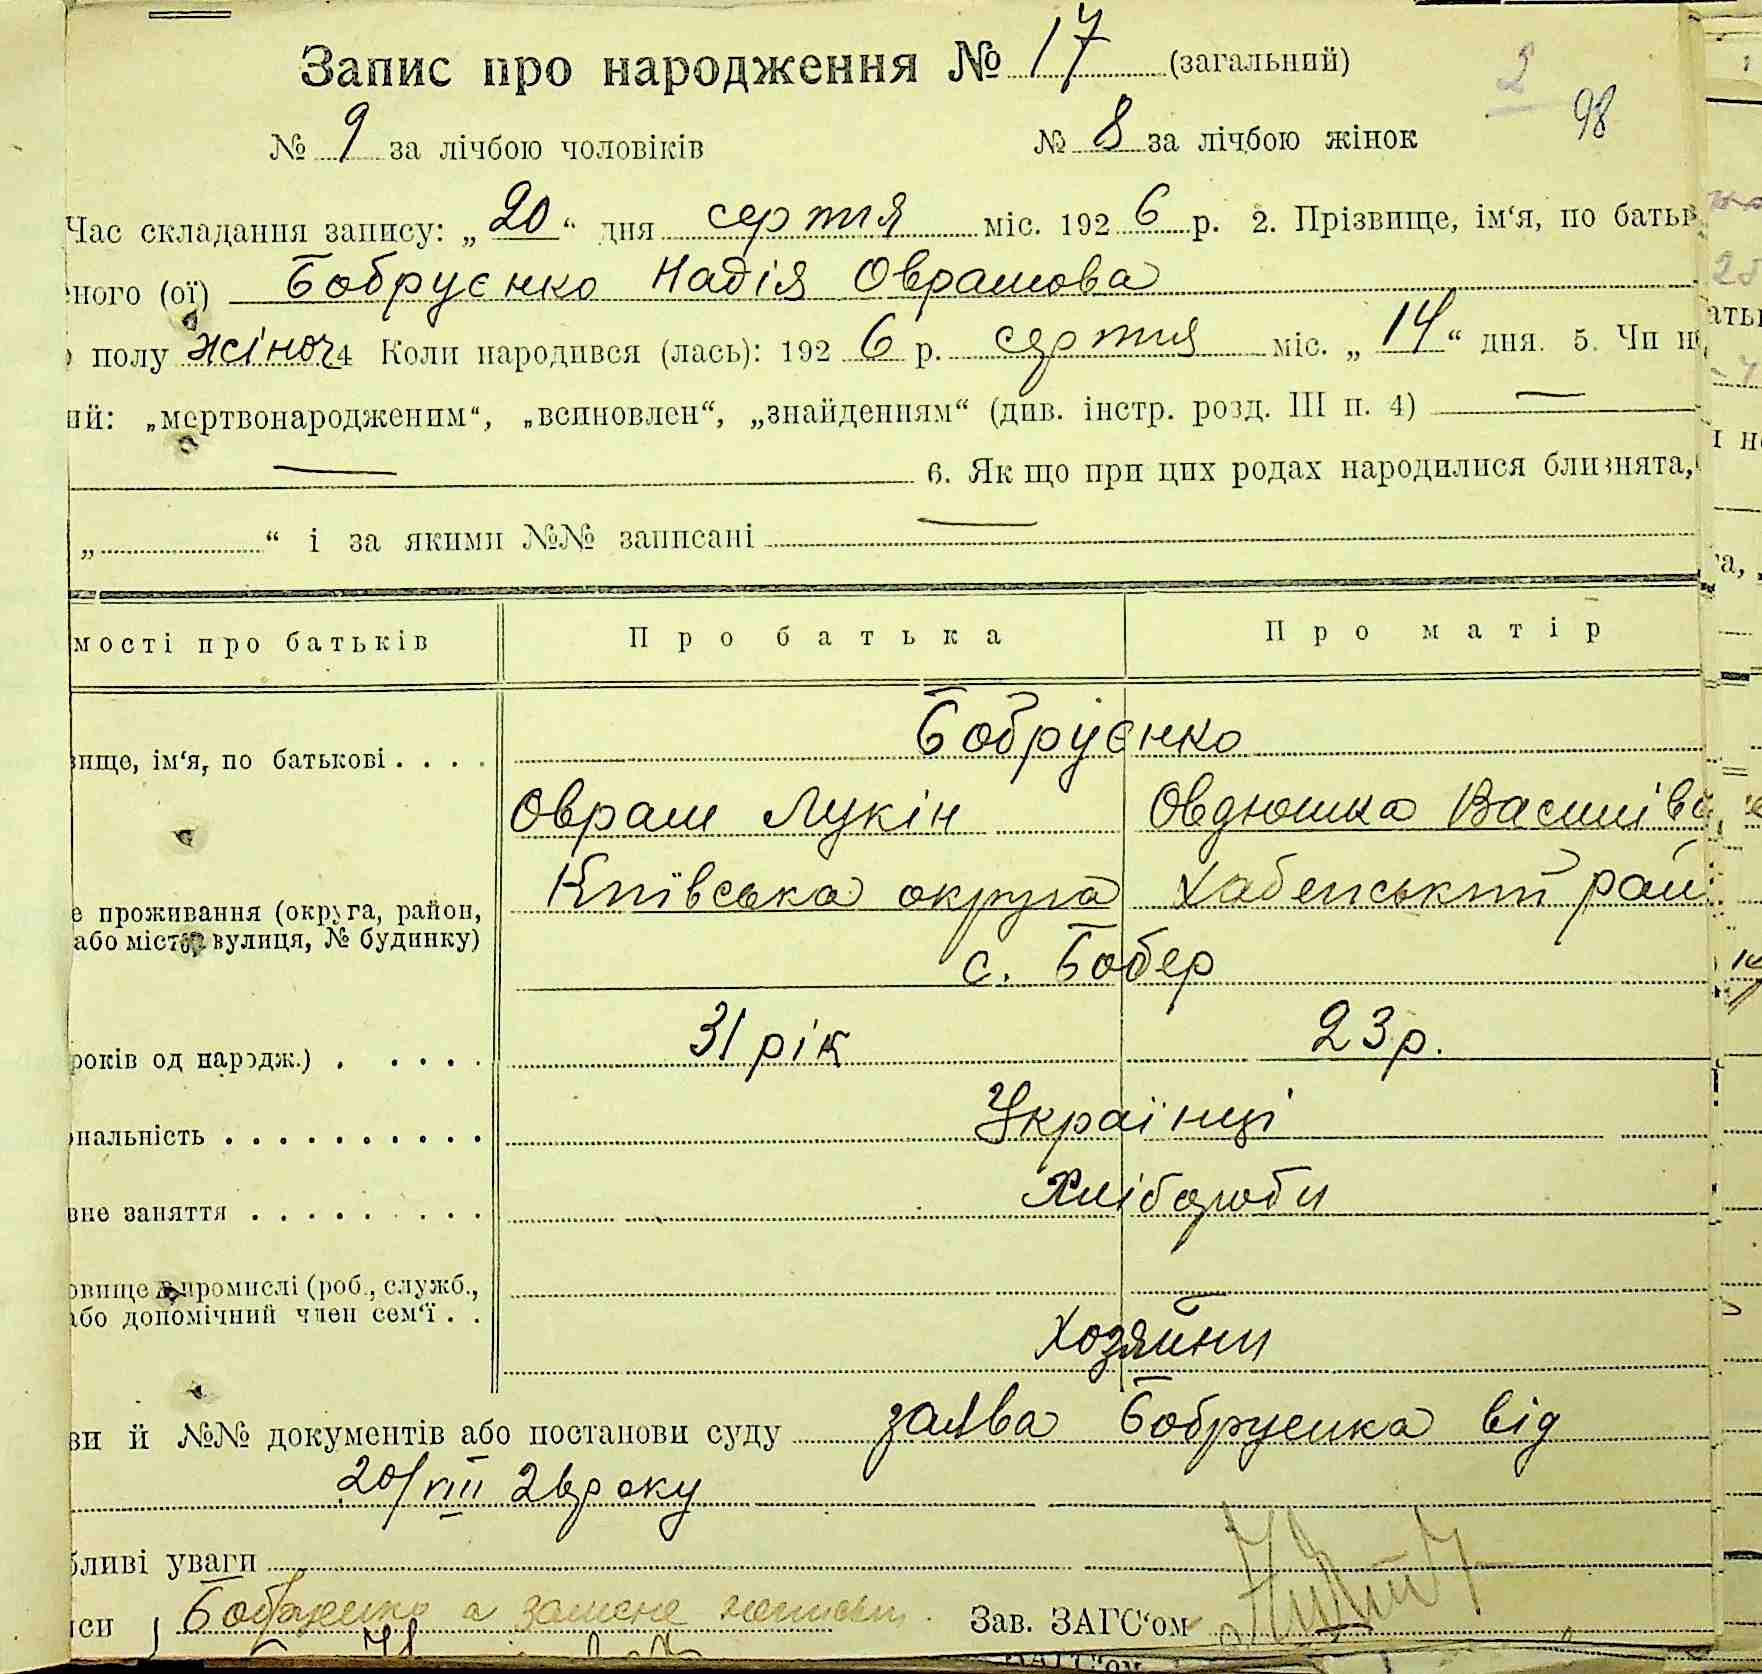 Запис про народження № 17 (загальний)
2
98
№ 9 за лічбою чоловіків № 8 за лічбою жінок
Час складання запису: „20“ дня серпня міс. 1926 р. 2. Прізвище, ім'я, по батьк
ного (ої) Бобруєнко Надія Оврамова
полу жіноч 4 Коли народився (лась): 1926 р. серпня міс. „14“ дня. 5. Чи н
ий: „мертвонародженим“, „всиновлен“, „знайденням“ (див. інстр. розд. III п. 4) —
— 6. Як що при цих родах народилися близнята,
„ “ і за якими №№ записані —
мості про батьків Про батька Про матір
Бобруєнко
вище, ім'я, по батькові . . . .
Оврам Лукін Овдюшка Василівa
Київська округа Хабенський рай.
е проживання (округа, район,
або місто, вулиця, № будинку)
с. Бобер
років од народж.) . . . . . 31 рік 23 р.
ональність . . . . . . . . . . Українці
вне заняття . . . . . . . . . Хлібороби
овище в промислі (роб., служб.,
або допомічний член сем'ї . .
Хозяйни
ви й №№ документів або постанови суду заява Бобруенка від
20/VIII 26 року
бливі уваги
иси Бобруенко а Зав. ЗАГС'ом